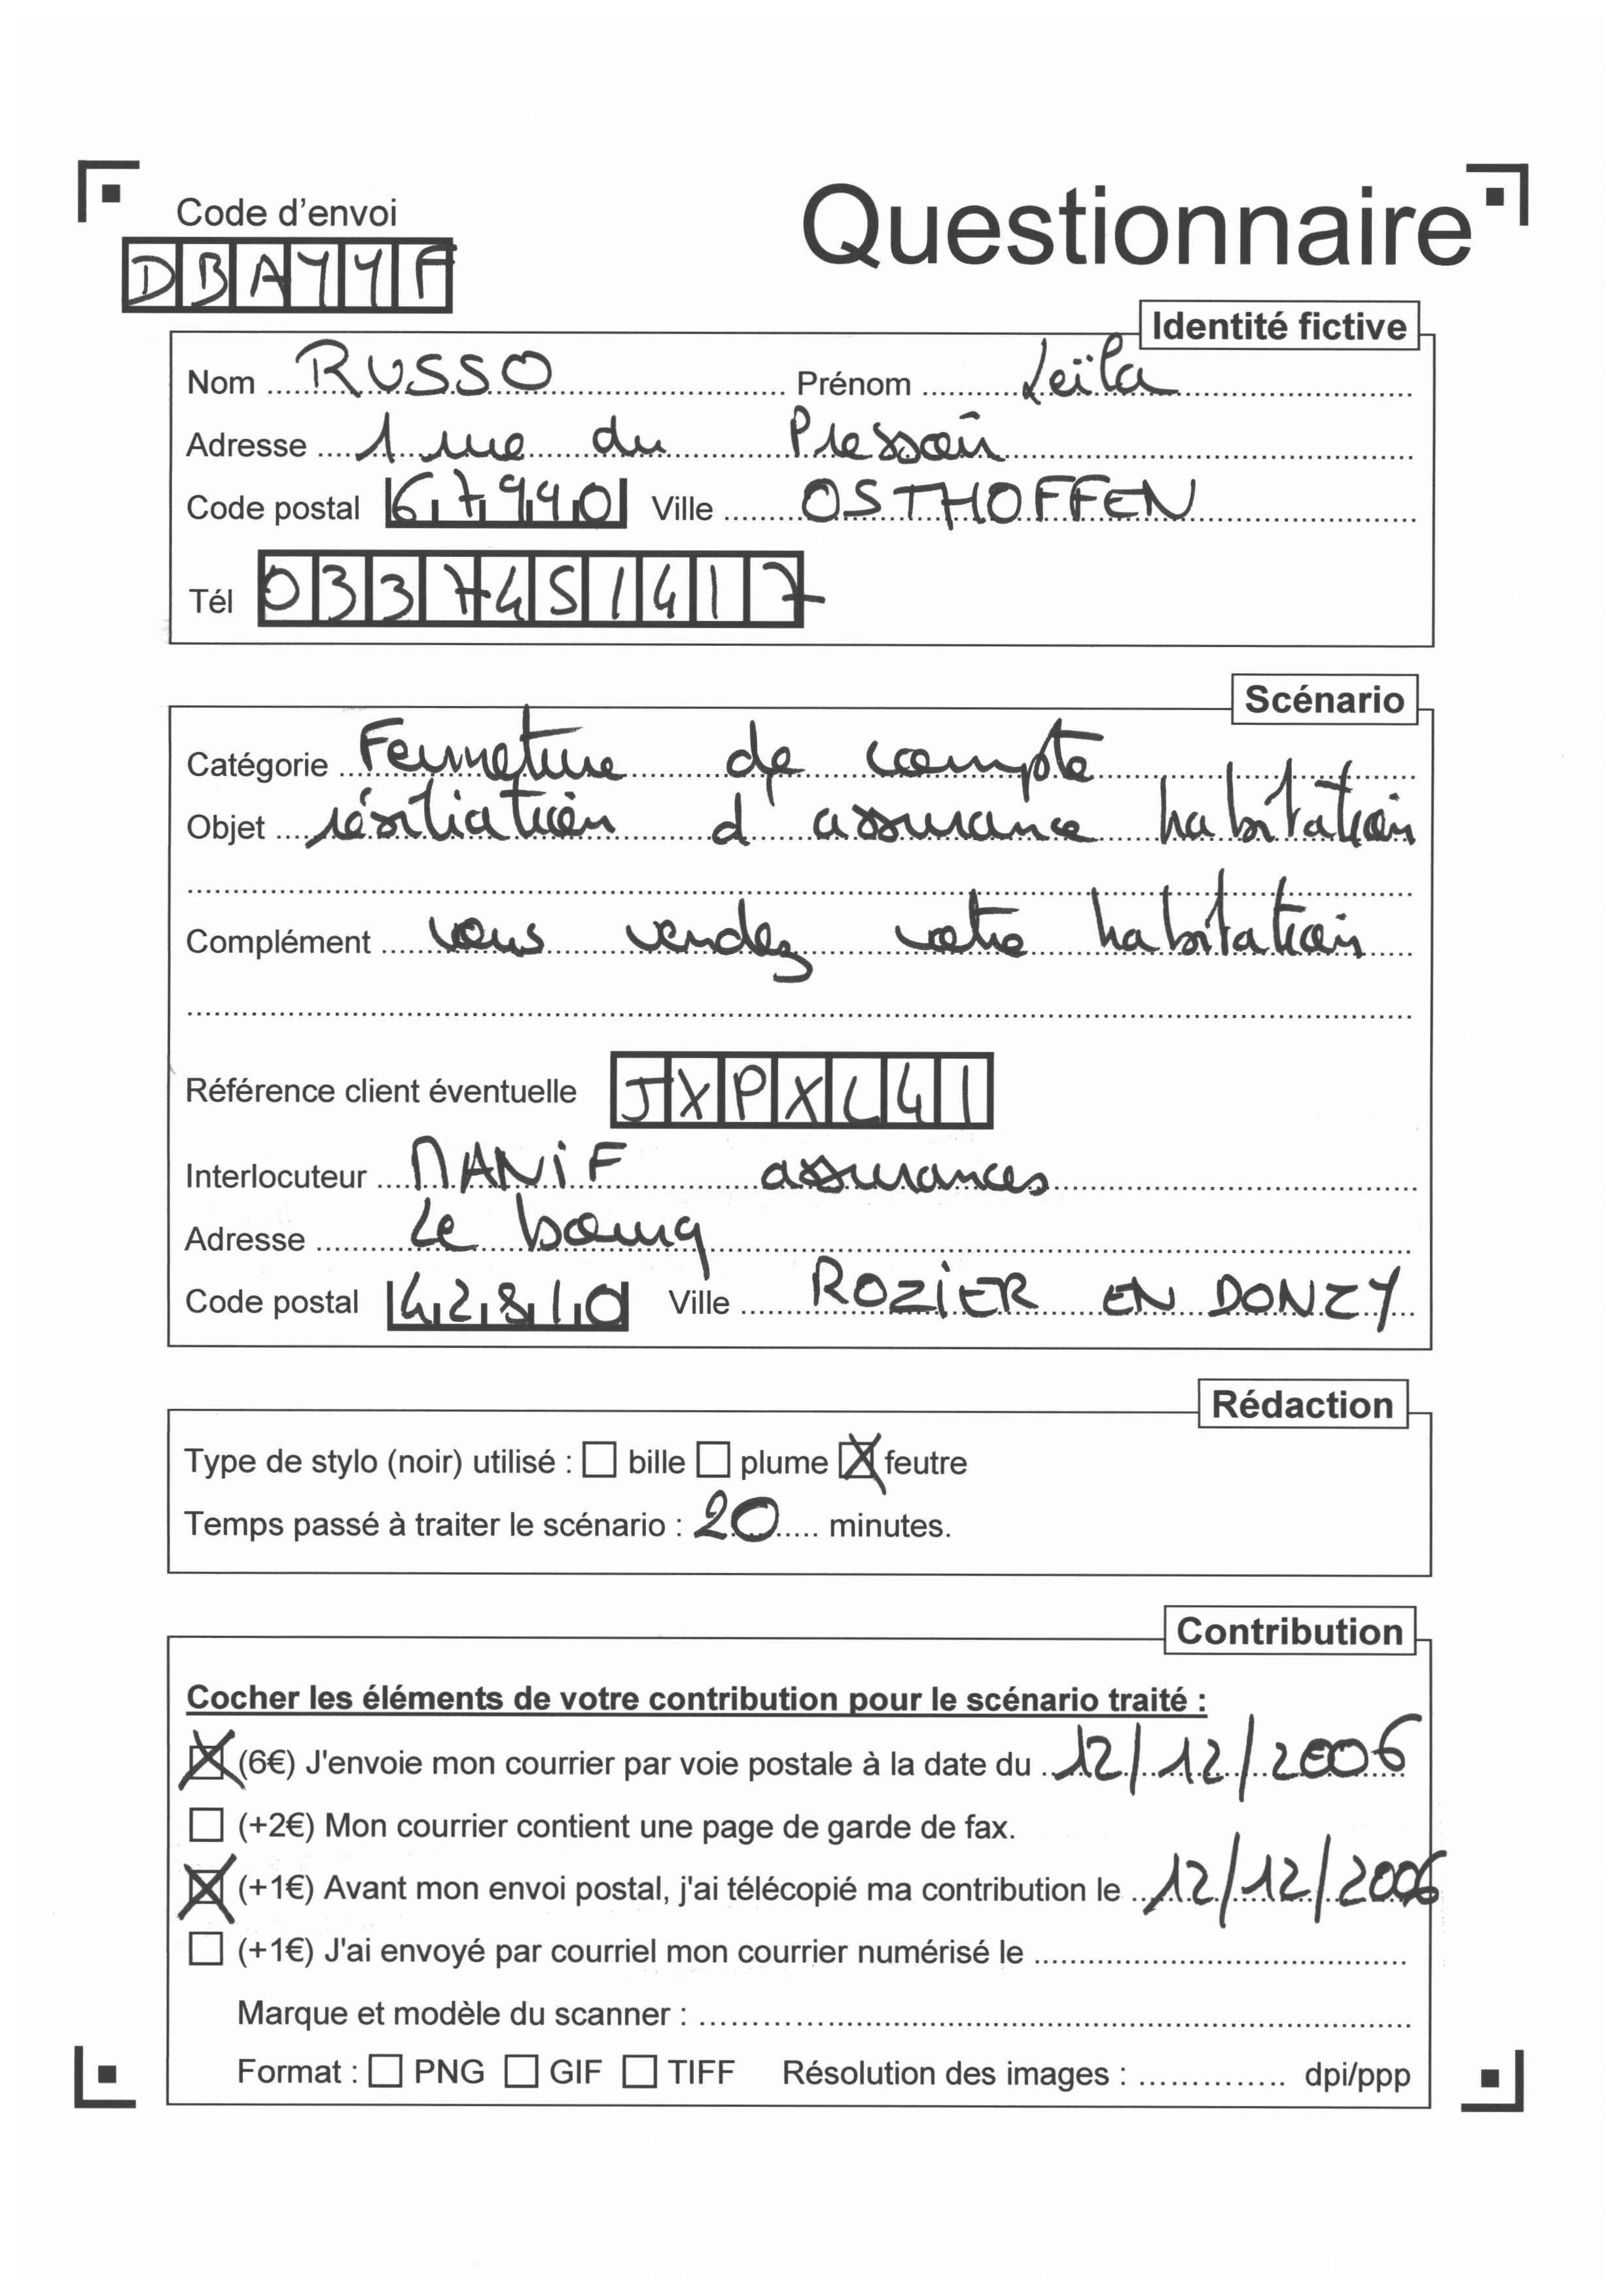 Code d'envoi
Questionnaire
DBAYYF
Identité fictive
Nom RUSSO Prénom Leïla
Adresse 1 rue du Pressoir
Code postal 67990 Ville OSTHOFFEN
Tél 0337451417
Scénario
Catégorie Fermeture de compte
Objet résiliation d'assurance habitation
Complément vous vendez votre habitation
Référence client éventuelle JXPXL41
Interlocuteur MANiF assurances
Adresse Le bourg
Code postal 42810 Ville ROZiER EN DONZY
Rédaction
Type de stylo (noir) utilisé : ☐ bille ☐ plume ☒ feutre
Temps passé à traiter le scénario : 20 minutes.
Contribution
Cocher les éléments de votre contribution pour le scénario traité :
☒ (6€) J'envoie mon courrier par voie postale à la date du 12/12/2006
☐ (+2€) Mon courrier contient une page de garde de fax.
☒ (+1€) Avant mon envoi postal, j'ai télécopié ma contribution le 12/12/2006
☐ (+1€) J'ai envoyé par courriel mon courrier numérisé le
Marque et modèle du scanner :
Format : ☐ PNG ☐ GIF ☐ TIFF Résolution des images : dpi/ppp